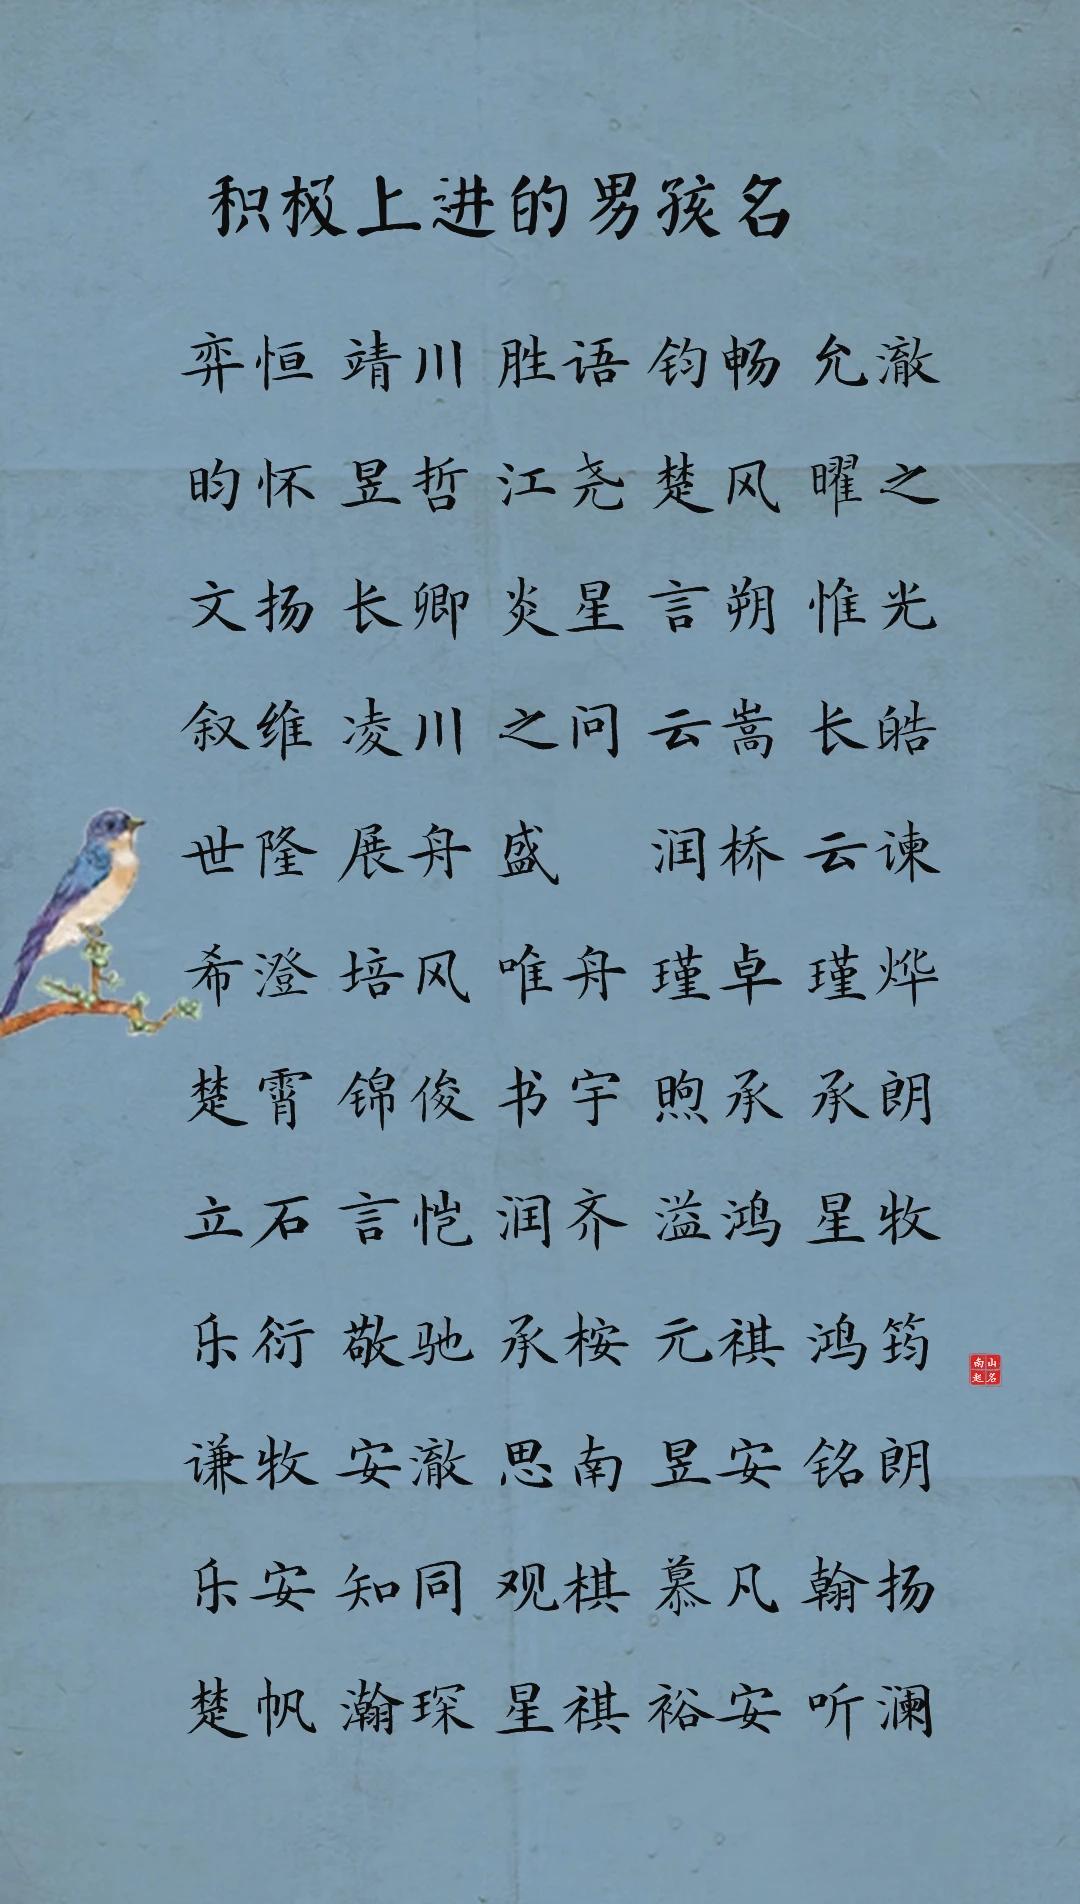 积极上进的男孩名
弈恒 靖川 胜语 钧畅 允澈
昀怀 昱哲 江尧 楚风 曜之
文扬 长卿 炎星 言朔 惟光
叙维 凌川 之问 云嵩 长皓
世隆 展舟 盛 润桥 云谏
希澄 培风 唯舟 瑾卓 瑾烨
楚霄 锦俊 书宇 煦承 承朗
立石 言恺 润齐 溢鸿 星牧
乐衍 敬驰 承桉 元祺 鸿筠
南山
起名
谦牧 安澈 思南 昱安 铭朗
乐安 知同 观棋 慕凡 翰扬
楚帆 瀚琛 星祺 裕安 听澜